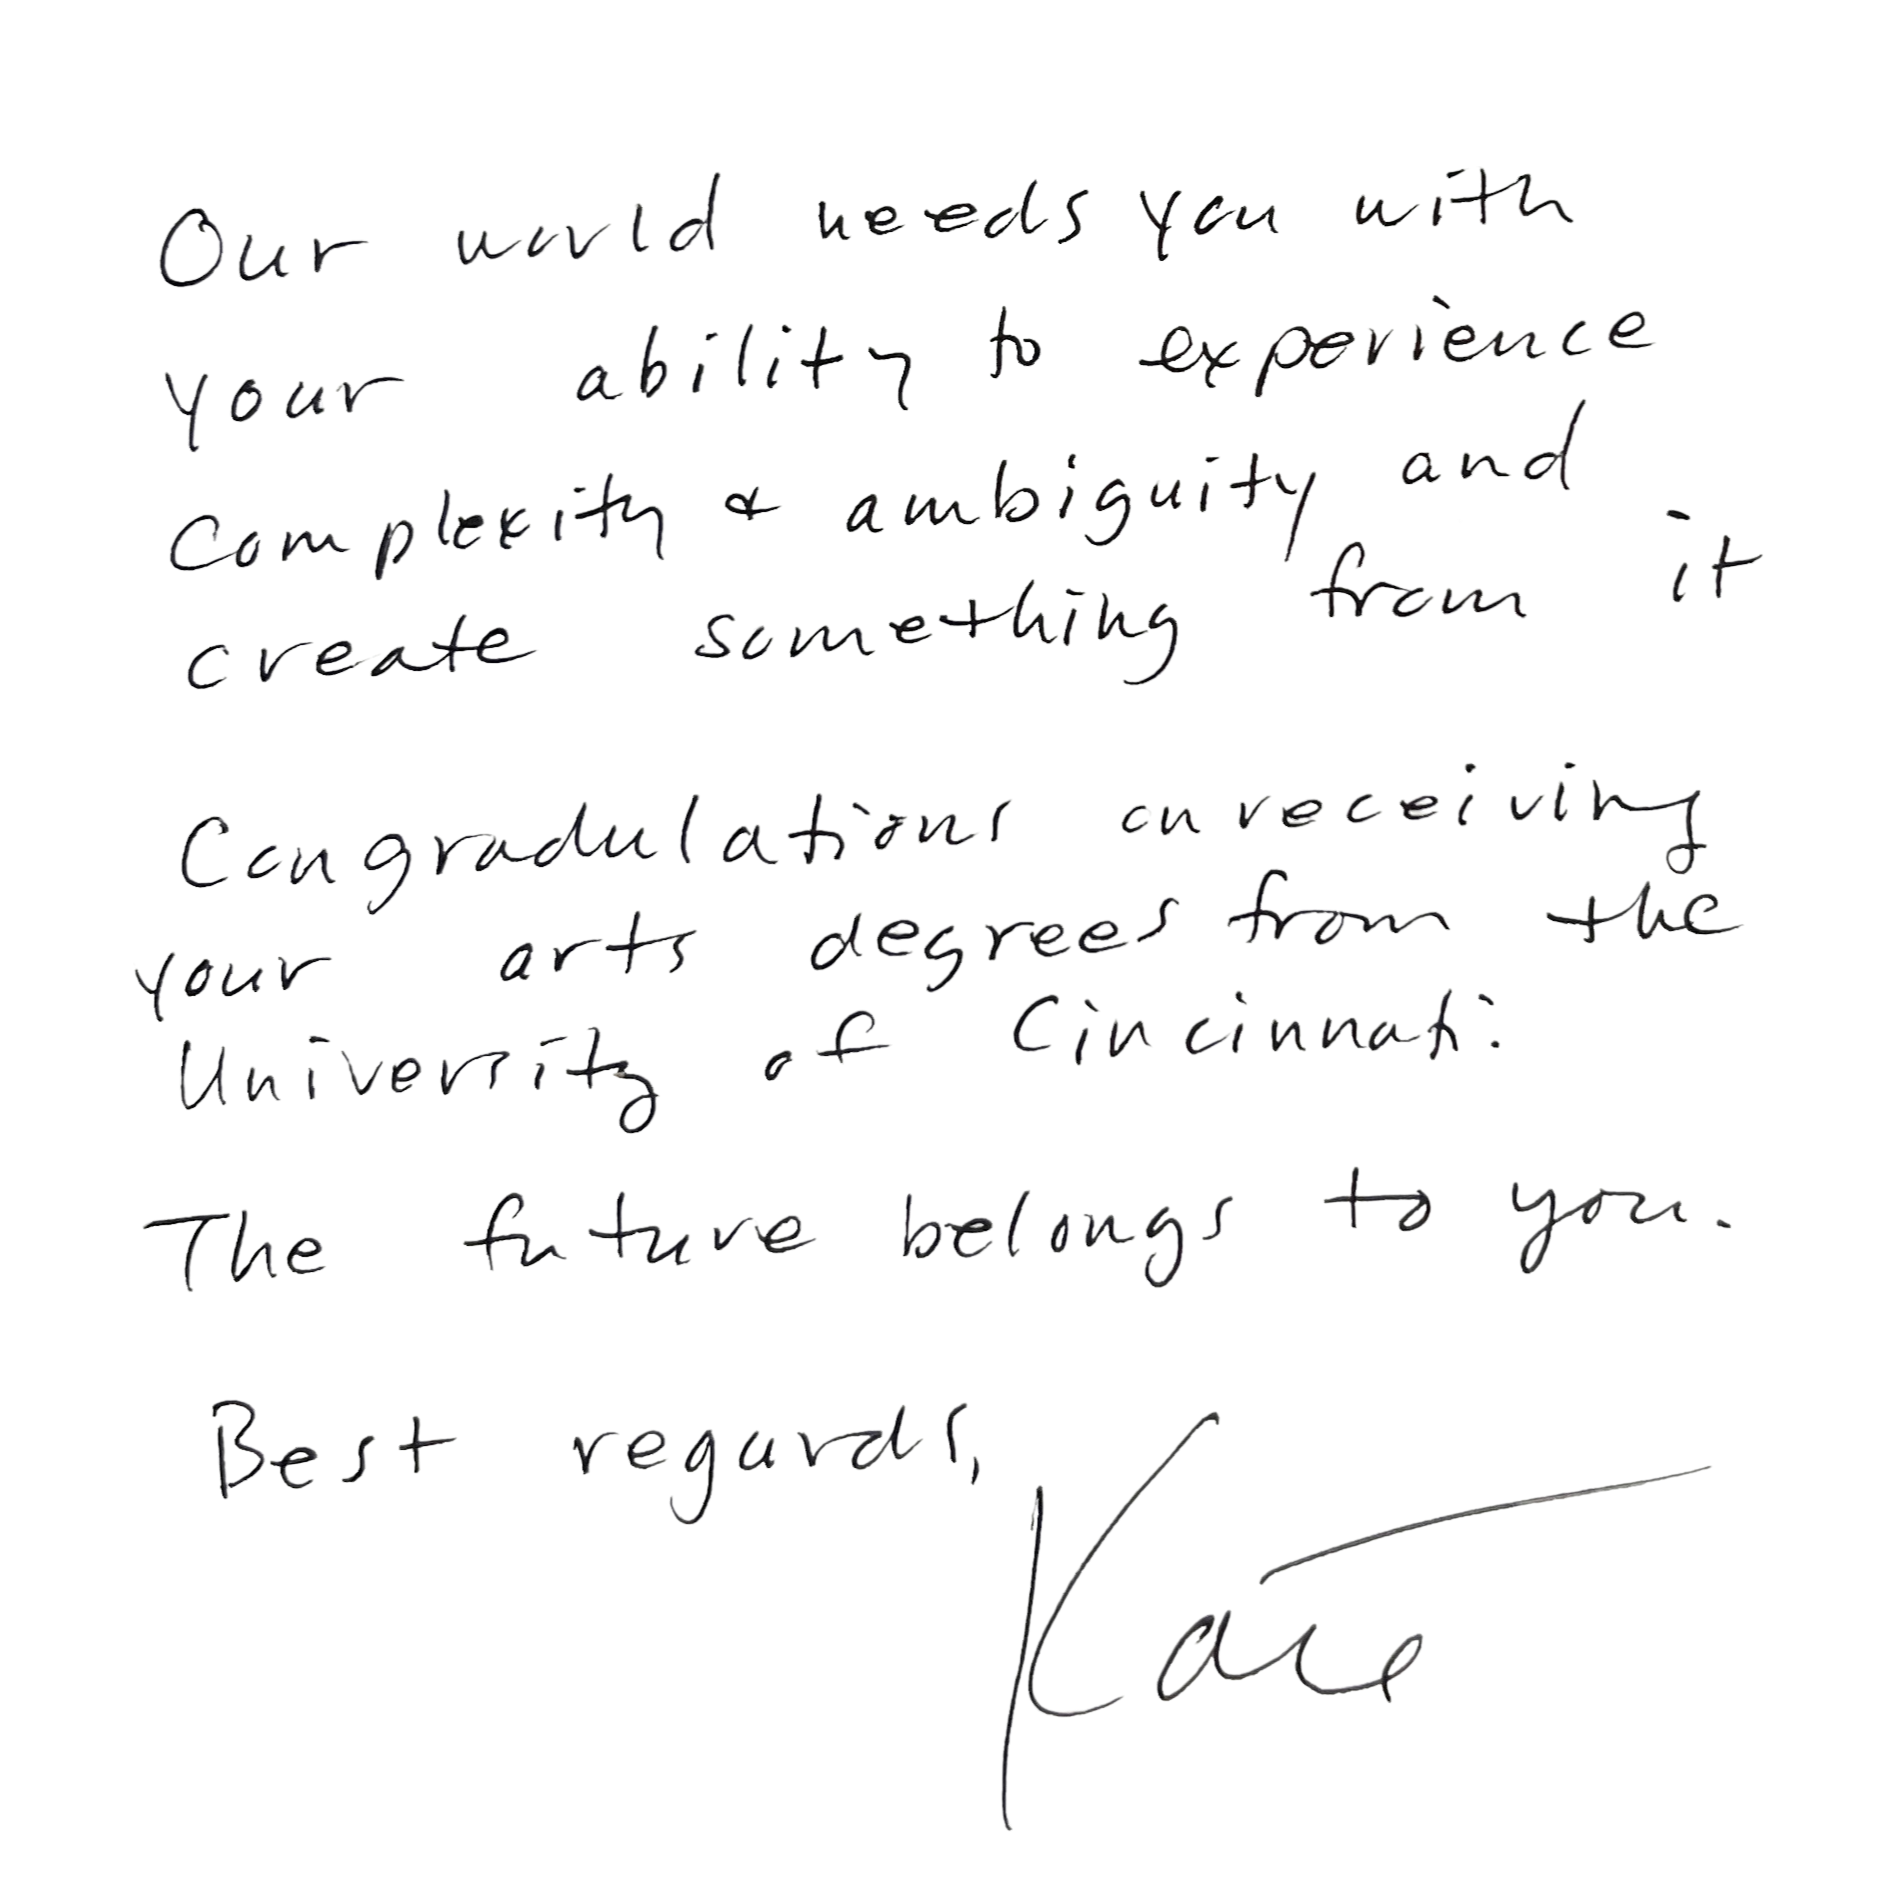 Our world needs you with
your ability to experience
complexity & ambiguity and
create something from it
Congradulations on receiving
your arts degrees from the
University of Cincinnati.
The future belongs to you.
Best regards,
Kate